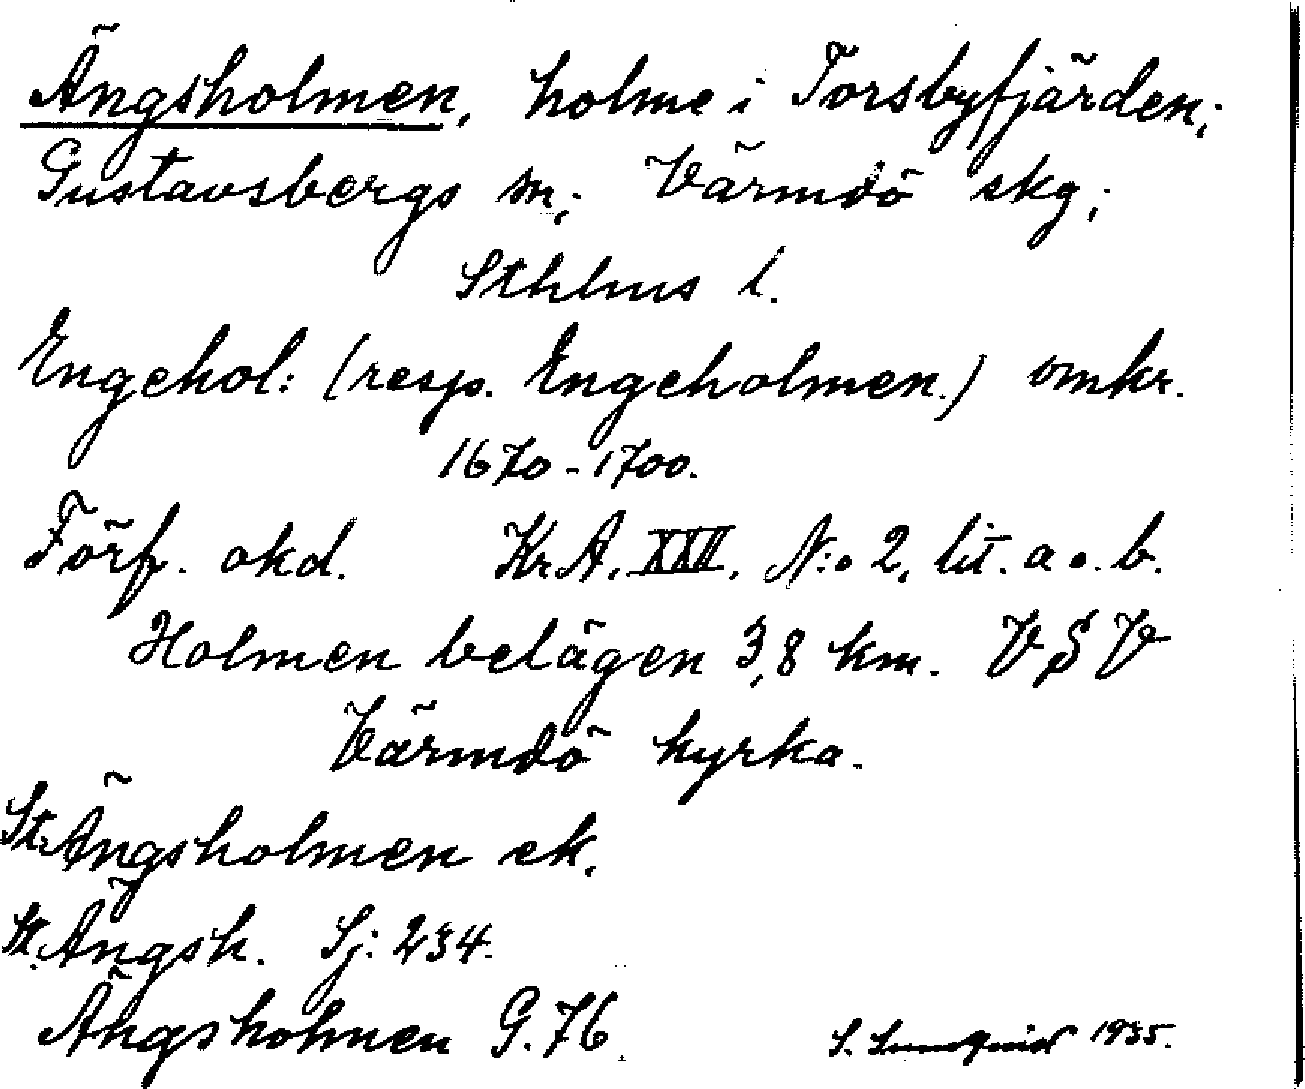 Ängsholmen, holme i Torsbyfjärden;
Gustavsbergs sn; Värmdö skg;
Sthlms l.
Engehol: (resp. Engeholmen.) omkr.
1670-1700.
Förf. okd. Kr.A. XXII. N:o 2, lit. a o. b.
Holmen belägen 3,8 km. VSV
Värmdö kyrka.
St. Ängsholmen ek.
St. Ängsh. Sj: 234.
Ängsholmen G. 76.
S. Lundquist 1935.